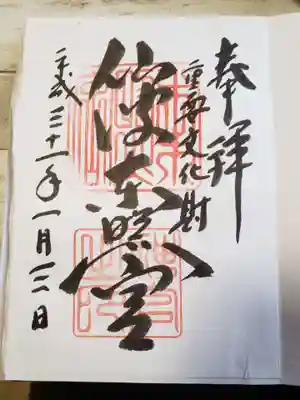 奉拝
重要文化財
仙波東照宮
平成三十一年一月二日